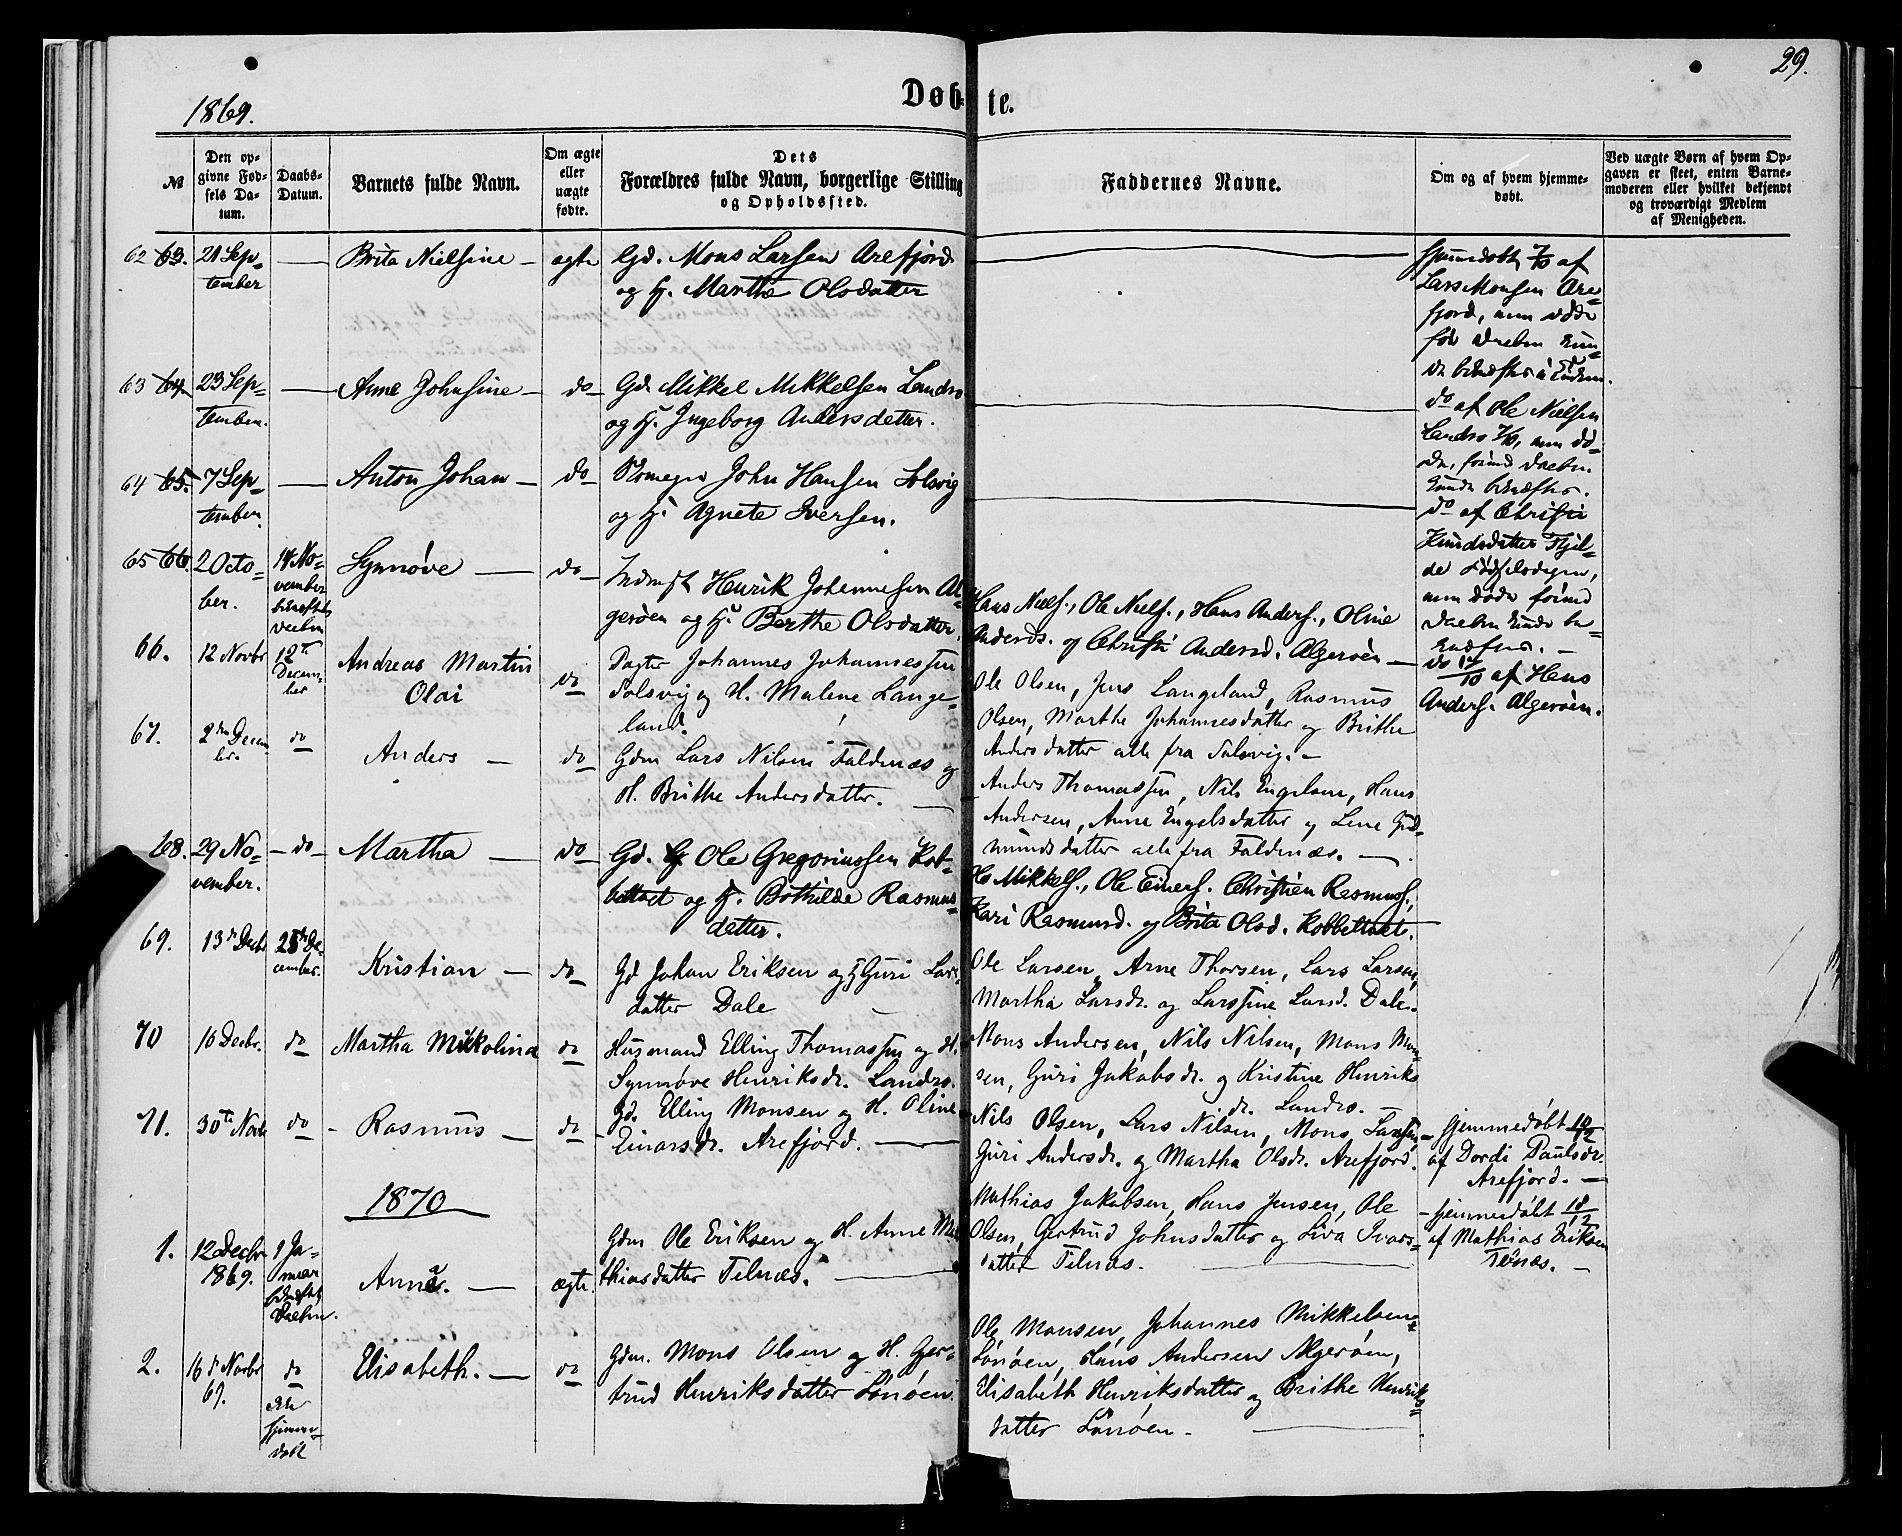 29.
1869.
Døbte.
№
Den opgivne Fødsels Datum.
Daabs-Datum.
Barnets fulde Navn.
Om ægte eller uægte fødte.
Dets Forældres fulde Navn, borgerlige Stilling og Opholdssted.
Faddernes Navne.
Om og af hvem hjemmedøbt.
Ved uægte Børn af hvem Opgaven er skeet, enten Barnemoderen eller hvilket bekjendt og troværdigt Medlem af Menigheden.
62 63. 21 September — Brita Nielsine — ægte
Gd. Mons Larsen Arefjord
og H. Marthe Olsdatter
Hjemdøbt 7/10 af
Lars Monsen Are-
fjord,
63 64 23 September — Anne Johnsine — do
Gd. Mikkel Mikkelsen Landro
og H. Ingeborg Andersdatter.
do af Ole Nielsen
Landro
64 65. 7 September — Anton Johan — do
John Hansen Solsvig
og H. Agnete Iversen.
do af Christi
Knudsdatter
65 66. 2 October. 14 November Synnøve — do
Henrik Johannesen Al-
gerøen og H. Berthe Olsdatter.
Hans Niels., Ole Niels., Hans Anders., Oline
Andersd. og Christi Andersd. Algerøen —
af Hans
Anders. Algerøen.
66. 12 Novbr 12te December Andreas Martin
Olai do
Johannes Johannessen
Solsvig og H. Malene Lange-
land.
Ole Olsen, Jens Langeland, Rasmus
Olsen, Marthe Johannesdatter og Brithe
Andersdatter alle fra Solsvig. —
67. 2den Decem-
ber. do Anders — do
Gdm Lars Nilsen Foldnæs og
H. Brithe Andersdatter. —
Anders Thomassen, Nils Engelsen, Hans
Andersen, Anne Engelsdatter og Lene Gud-
mundsdatter alle fra Foldnæs. —
68. 29 November. — do — Martha — do
Gd. Ole Gregoriussen Kob-
beltvet og H. Bothilde Rasmus-
datter.
Ole Einers. Christien Rasmuss.,
Kari Rasmusd. og Brita Olsd. Kobbeltvet.
69. 13de Decbr 25de December. Kristian — do
Gd Johan Eriksen og H Guri Lars-
datter Dale
Ole Larsen, Arne Thorsen, Lars Larsen,
Martha Larsdr. og Larssine Larsd. Dale.
70 16 Decbr. do Martha Mikkolina do
Husmand Elling Thomassen og H.
Synnøve Henriksdr. Landro.
Mons Andersen, Nils Nilsen, Mons Mon-
sen, Guri Jakobsdr. og Kristine Henriks
dr. Landro. —
71. 30te Novb do - Rasmus — do -
Gd. Elling Monsen og H. Oline
Einarsdr. Arefjord. —
Nils Olsen, Lars Nilsen, Mons Larsen,
Guri Andersdr. og Martha Olsdr. Arefjord.
- hjemmedøbt 10/12
af Dordi Paulsdr.
Arefjord. —
1870
1. 12 Decbr
1869. 1 Januar Anna. — ægte.
Gdm Ole Eriksen og H. Anne Ma-
thiasdatter Telnæs. —
Mathias Jakobsen, Hans Jensen, Ole
Olsen, Gertrud Johnsdatter og Siva Ivars-
datter Telnæs.
- hjemmedøbt 18/12
af Mathias Eriksen
Telnæs. —
2. 16de Novbr
69. do
Elisabeth. — do
Gdm. Mons Olsen og H. Ger-
trud Henriksdatter Lønøen.
Ole Monsen, Johannes Mikkelsen
Lønøen, Hans Andersen Algerøen,
Elisabeth Henriksdatter og Brithe Henriks-
datter Lønøen -